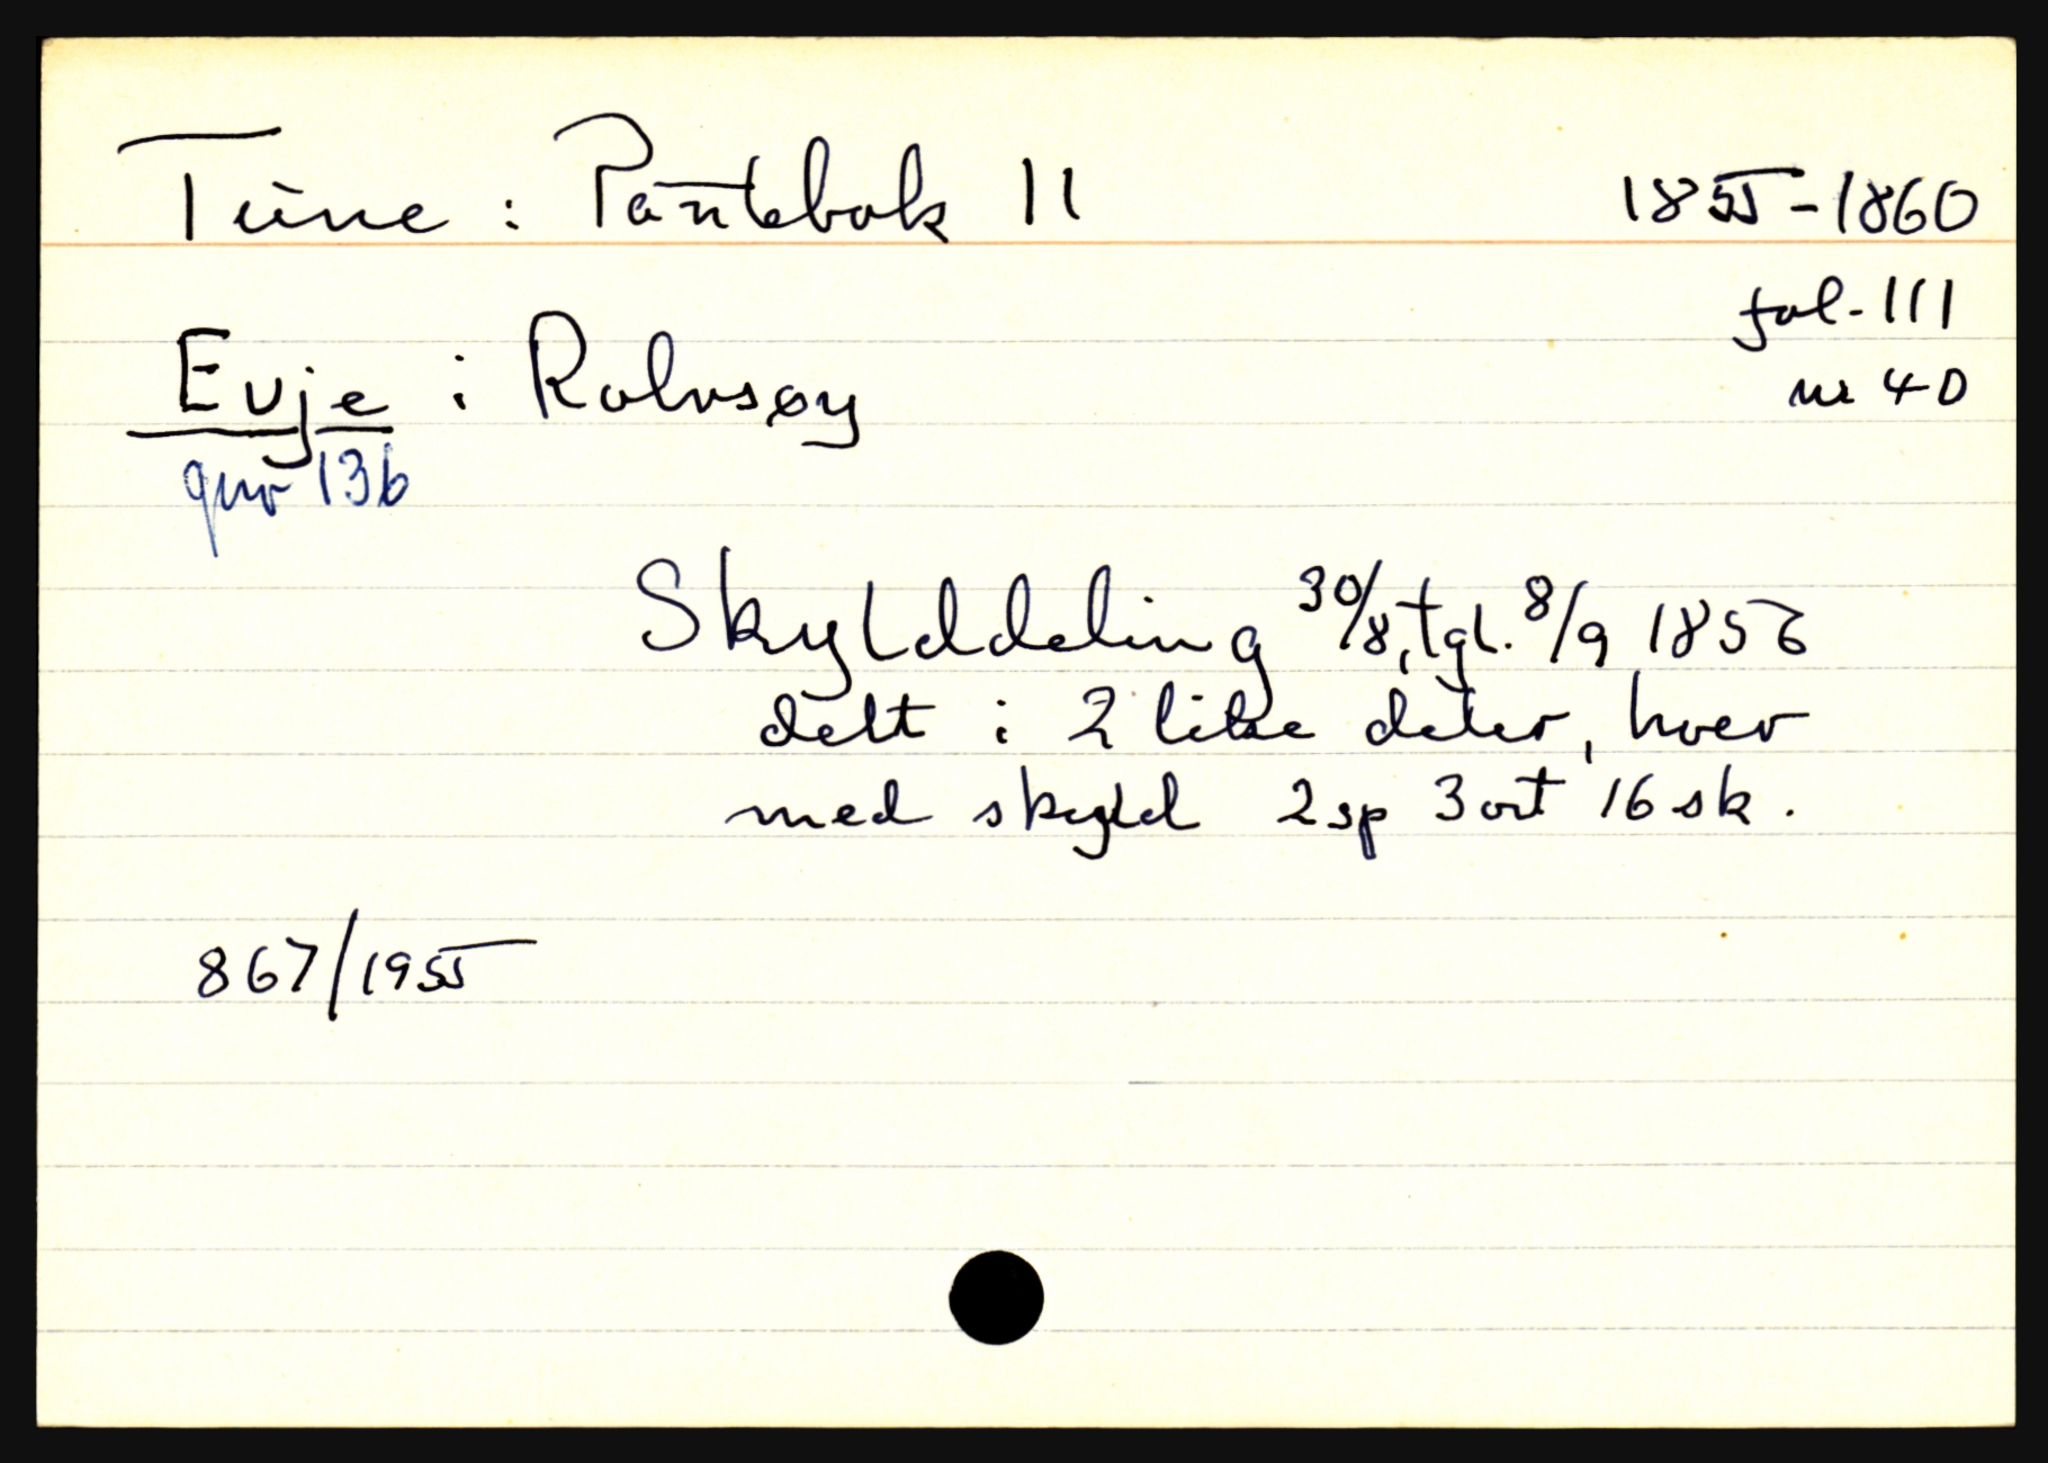 Tune : Pantebok 11 1855-1860
fol. 111
Evje i Rolvsøy nr 40
gnr 136
Skylddeling 30/8, tgl. 8/9 1856
delt i 2 like deler, hver
med skyld 2 sp 3 ort 16 sk.
867/1955